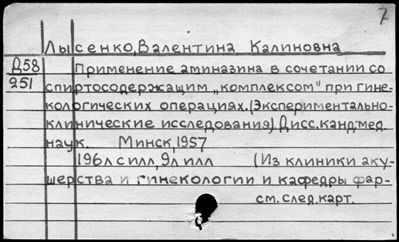 7
Лысенко, Валентина Калиновна
Д58 Применение аминазина в сочетании со
251 спиртосодержащим „комплексом" при гине-
кологических операциях. (Экспериментально-
клинические исследования). Дисс. канд. мед.
наук. Минск, 1957
196л с илл, 9л илл (Из клиники аку-
шерства и гинекологии и кафедры фар-
см. след. карт.